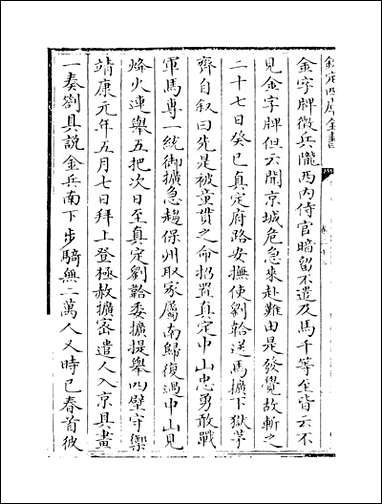 欽定四庫全書
金字牌徴兵隴西内侍官暗留不遣及馬千等至皆云不
見金字牌但云聞京城危急來赴難由是發覺故斬之
二十七日癸巳真定府路安撫使劉韐送馬擴下獄茅
齊自叙曰先是被童貫之命招置真定中山忠勇敢戰
軍馬專一統御擴急趨保州取家屬南歸復過中山見
烽火連舉五把次日至真定劉韐委擴提舉四壁守禦
靖康元年五月七日拜上登極赦擴密遣人入京具畫
一奏劄具説金兵南下步騎無二萬人又時已春首彼